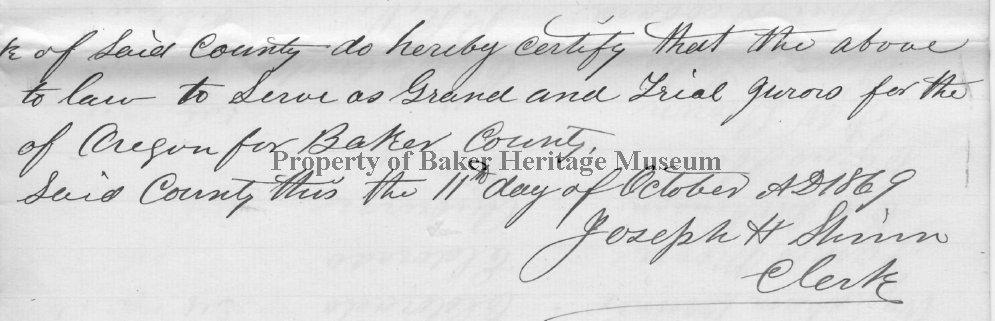 k of Said County do hereby certify that the above
to law to Serve as Grand and Trial Jurors for the
of Oregon for Baker County.
Property of Baker Heritage Museum
Said County this the 11th day of October AD 1869
Joseph H Shinn
Clerk